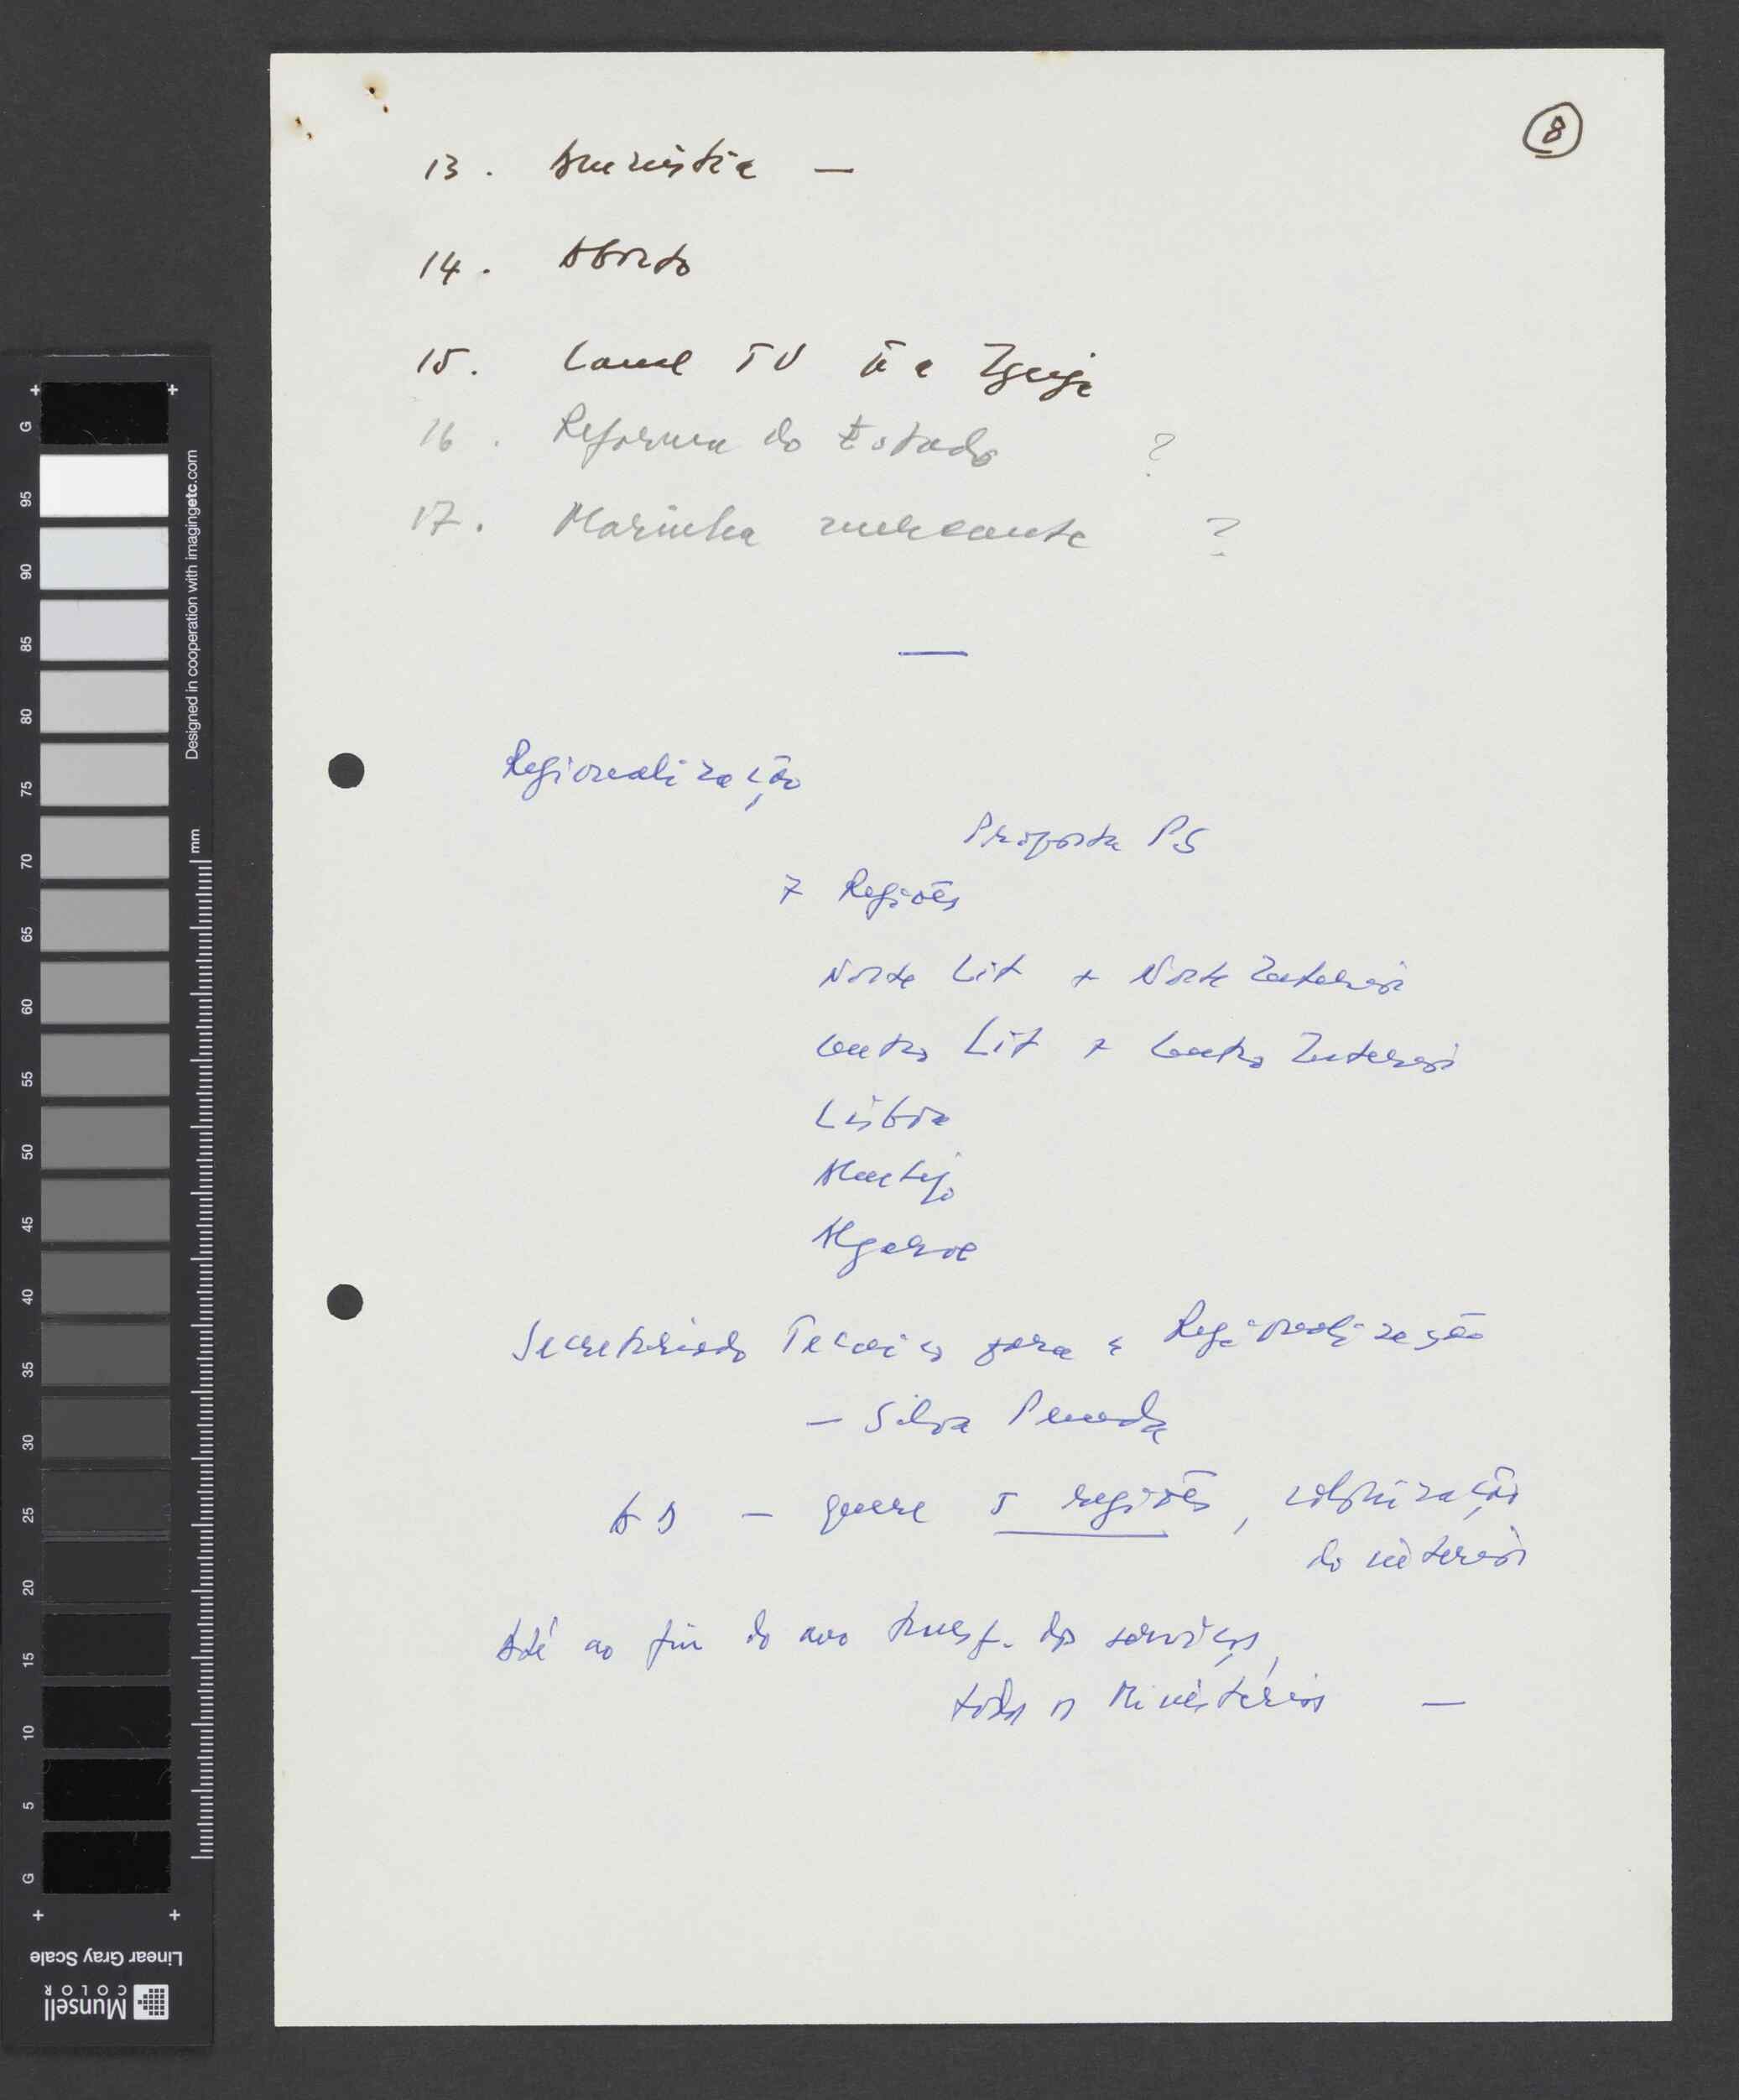 8
13. Amnistia —
14. Aborto
15. Canal TV à Igreja
16. Reforma do Estado ?
17. Marinha mercante ?
—
Regionalização
Proposta PS
7 Regiões
Norte Lit + Norte Interior
Centro Lit + Centro Interior
Lisboa
Alentejo
Algarve
Secretariado Tecnico para a Regionalização
— Silva Peneda
AD — quere 5 regiões, colonização
do interior
Até ao fim do ano transf. dos serviços,
todos os Ministérios —
G 95 90 85 80 75 70 65 60 55 50 45 40 35 30 25 20 15 10 5 G
Designed in cooperation with imagingetc.com
mm
Linear Gray Scale
Munsell
COLOR